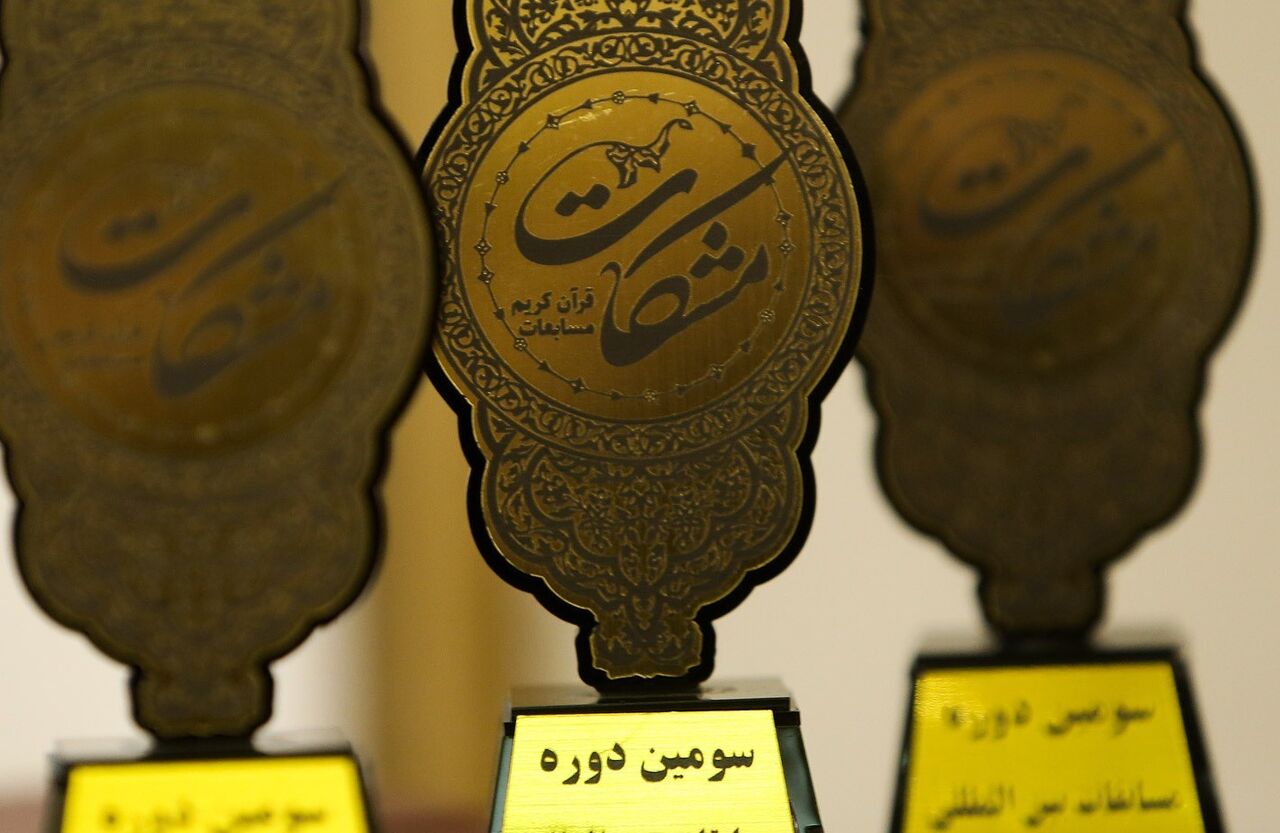 مشکات
مسابقات
قرآن کریم
سومین دوره
مشکات
سومین دوره
مشکات
سومین دوره
مسابقات بین المللی